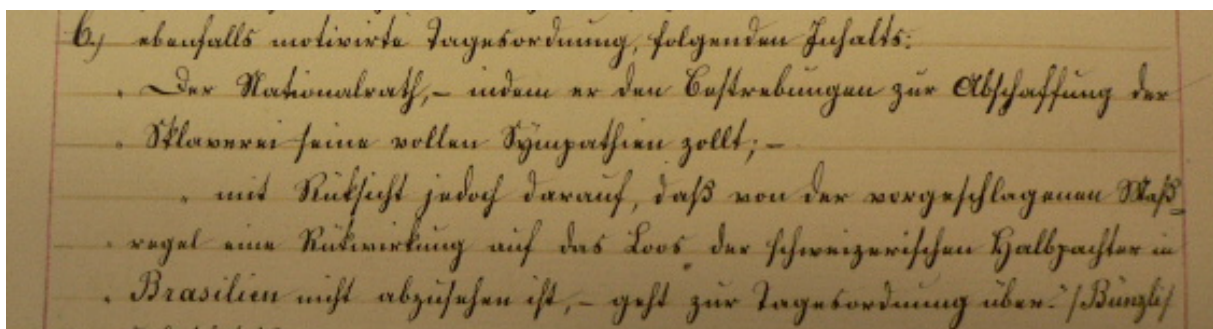 6.) ebenfalls motivirte Tagesordnung, folgenden Inhalts:
„Der Nationalrath, – indem er den Bestrebungen zur Abschaffung der
„Sklaverei seine vollen Sympathien zollt; –
„mit Rüksicht jedoch darauf, daß von der vorgeschlagenen Maß=
„regel eine Rükwirkung auf das Loos der schweizerischen Halbpachter in
„Brasilien nicht abzusehen ist, – geht zur Tagesordnung über.“ /Bünzli/